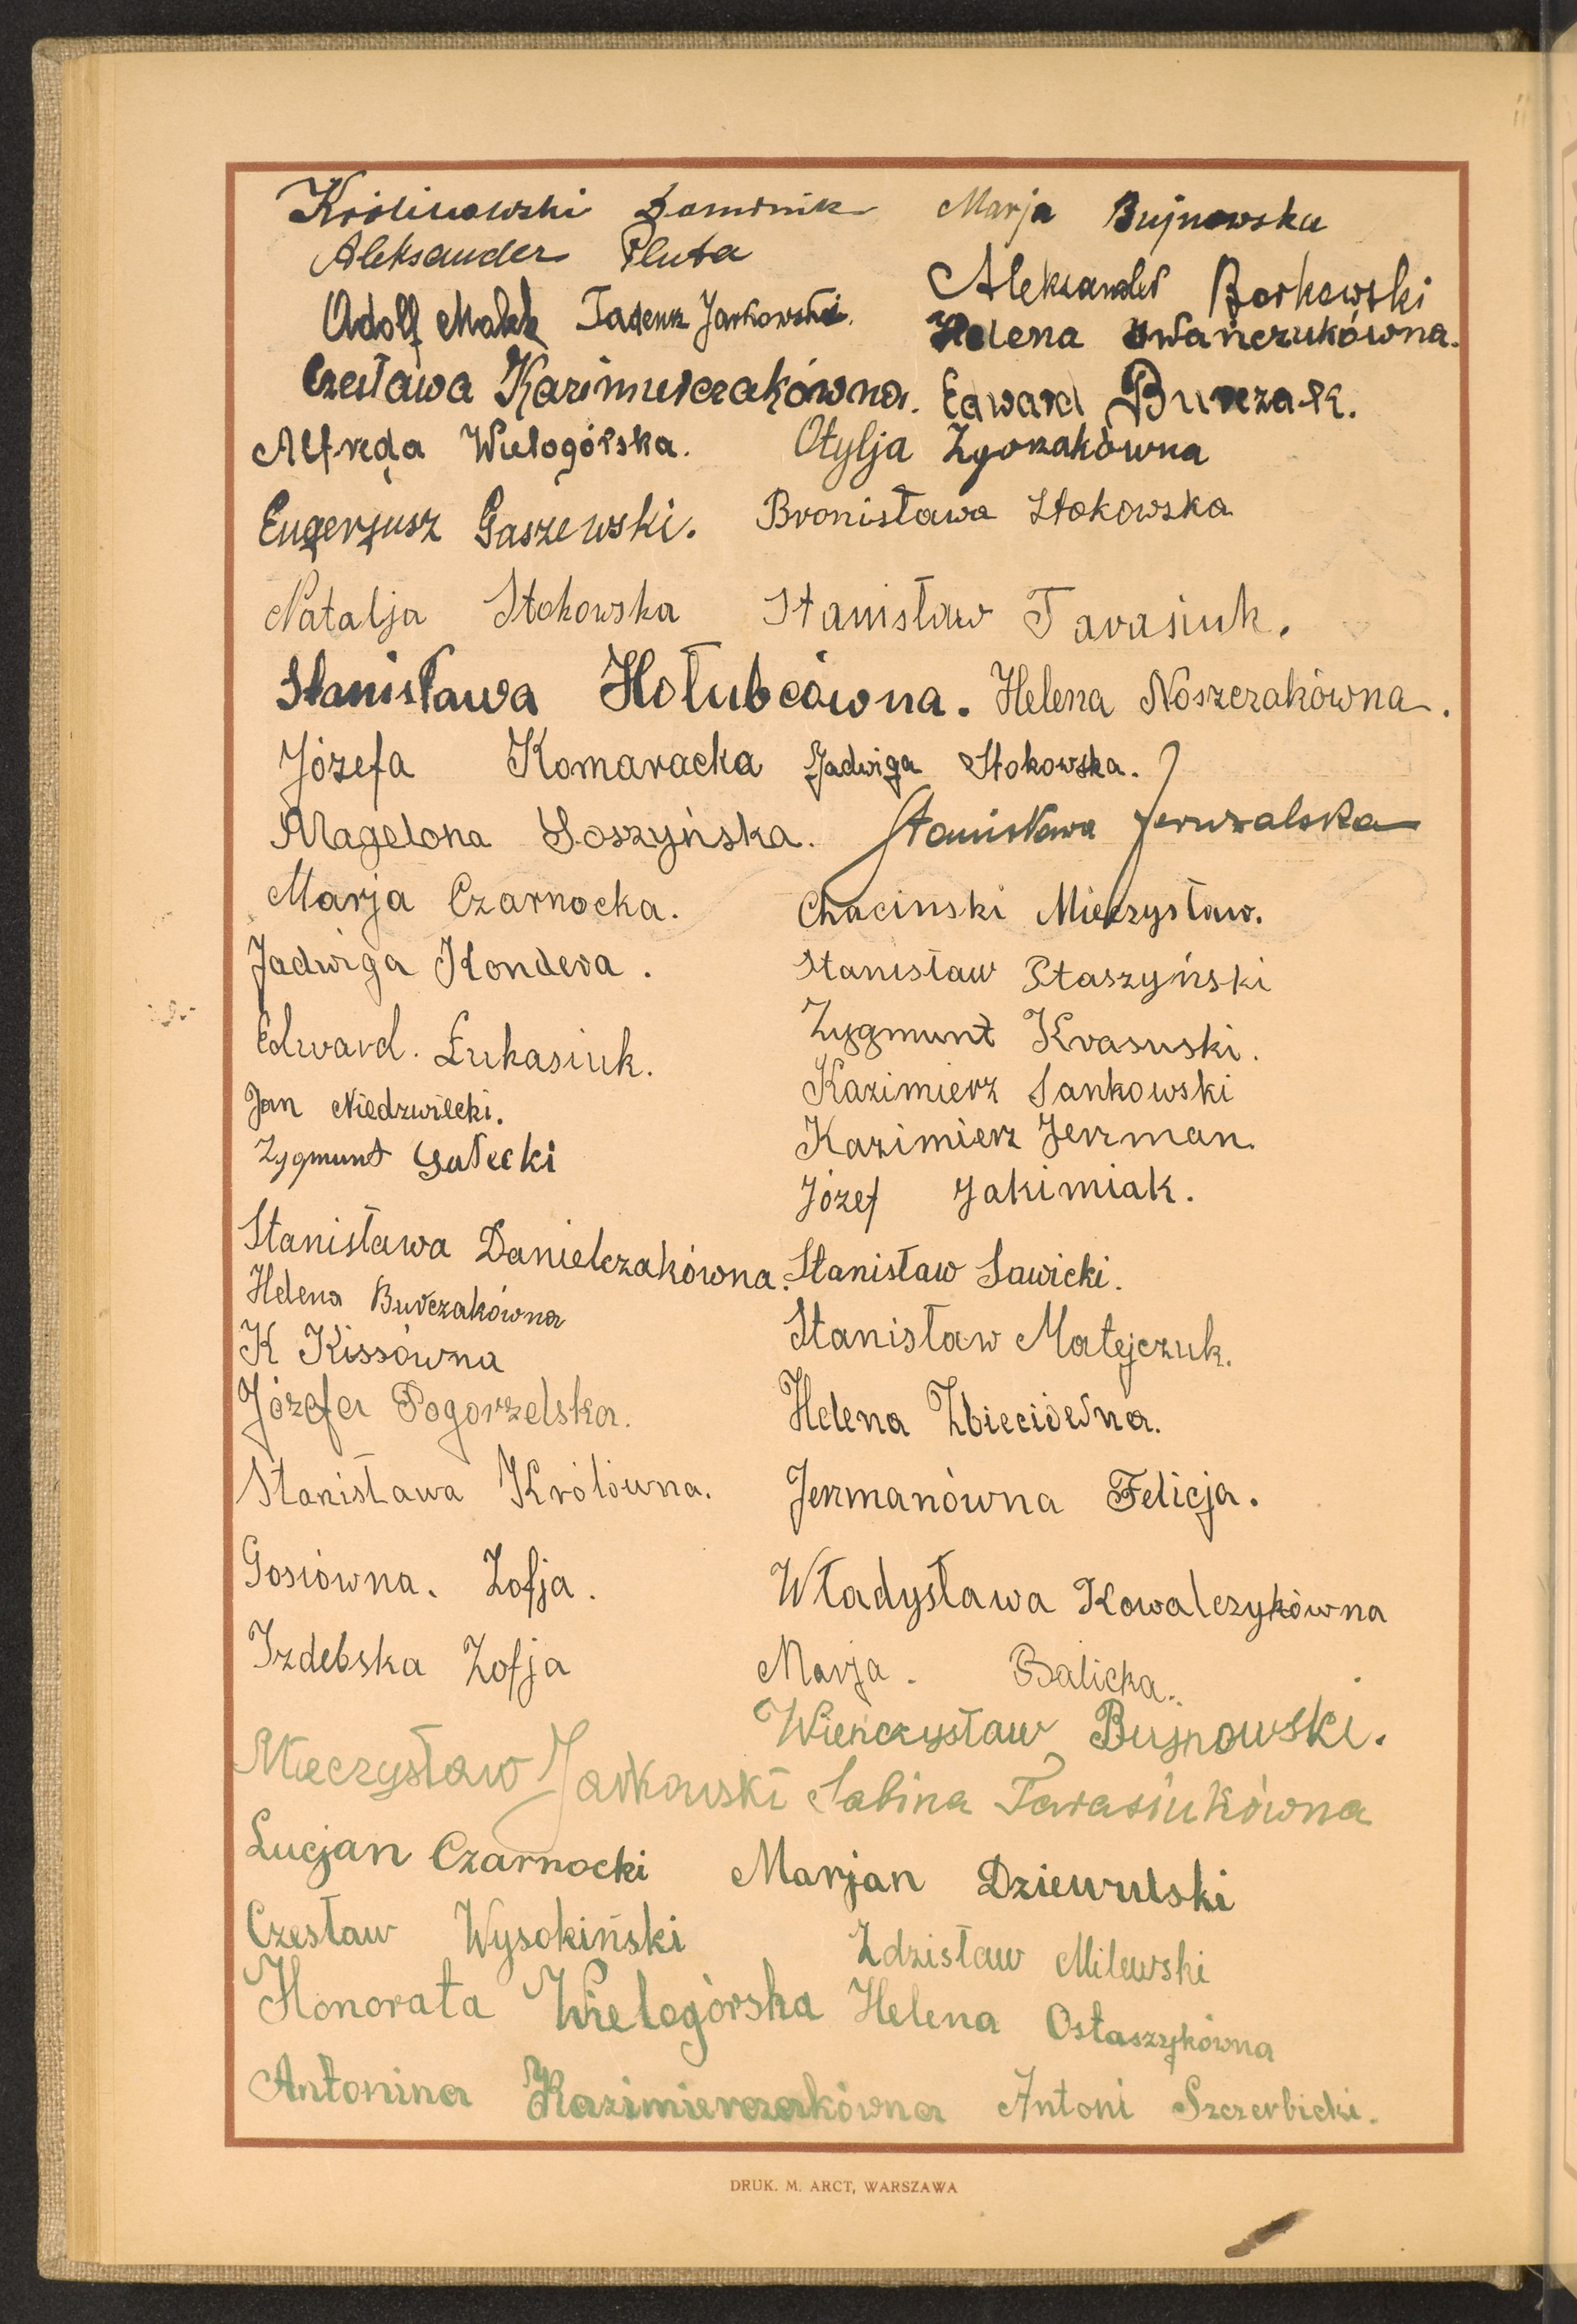 Królikowski Dominik Marja Bujnowska
Aleksander Pluta
Aleksander Borkowski
Adolf Malek Tadeusz Jarkowski.
Helena Iwańczukówna.
Czesława Kazimierczakówna. Edward Burczak.
Alfreda Wielogórska. Otylja Zgorzakówna
Eugenjusz Gaszewski. Bronisława Stokowska
Natalja Stokowska Stanisław Tarasiuk.
Stanisława Hołubcówna. Helena Noszczakówna.
Józefa Komaracka Jadwiga Stokowska.
Magelona Soszyńska. Stanisława Jeruzalska
Marja Czarnocka. Chacinski Mieczysław.
Jadwiga Kondera. Stanisław Staszyński
Edward. Łukasiuk. Zygmunt Krasuski.
Jan Niedzwiecki. Kazimierz Sankowski
Zygmunt Gałecki Kazimierz Jerzman.
Józef Jakimiak.
Stanisława Danielczakówna. Stanisław Sawicki.
Helena Burczakówna
K Kissówna Stanisław Matejczuk.
Józefa Pogorzelska. Helena Zbieciówna.
Stanisława Królówna. Jerzmanówna Felicja.
Gosiówna. Zofja. Władysława Kowalczykówna
Izdebska Zofja Marja. Balicka.
Wieńczysław Bujnowski.
Mieczysław Jarkowski Sabina Tarasiukówna
Lucjan Czarnocki Marjan Dziewulski
Czesław Wysokiński Zdzisław Milewski
Honorata Wielogórska Helena Ostaszykówna
Antonina Kazimierczakówna Antoni Szczerbicki.
DRUK. M. ARCT, WARSZAWA